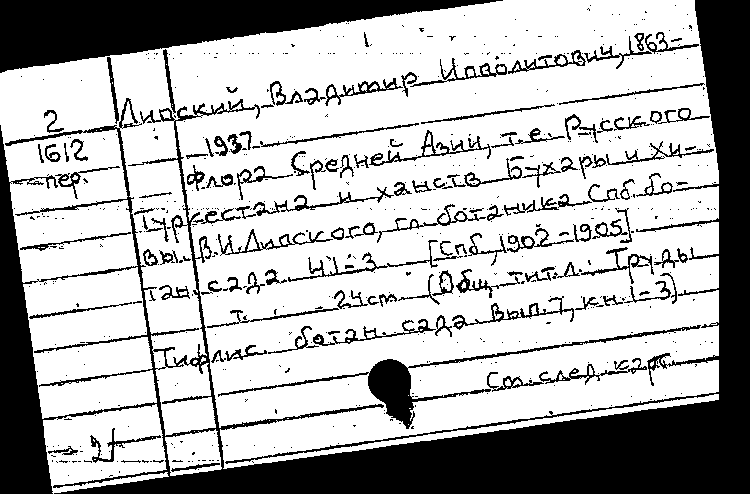 1
Липский, Владимир Ипполитович, 1863-
2
1612
пер.
1937.
Флора Средней Азии, т.е. Русского
Туркестана и ханств Бухары и Хи-
вы. В.И.Липского, гл. ботаника Спб. бо-
тан. сада. Ч.1-3. [Спб, 1902-1905].
т. - 24cm. (Общ. тит. л.: Труды
Тифлис. ботан. сада. Вып. 7, кн. 1-3).
См. след. карт.